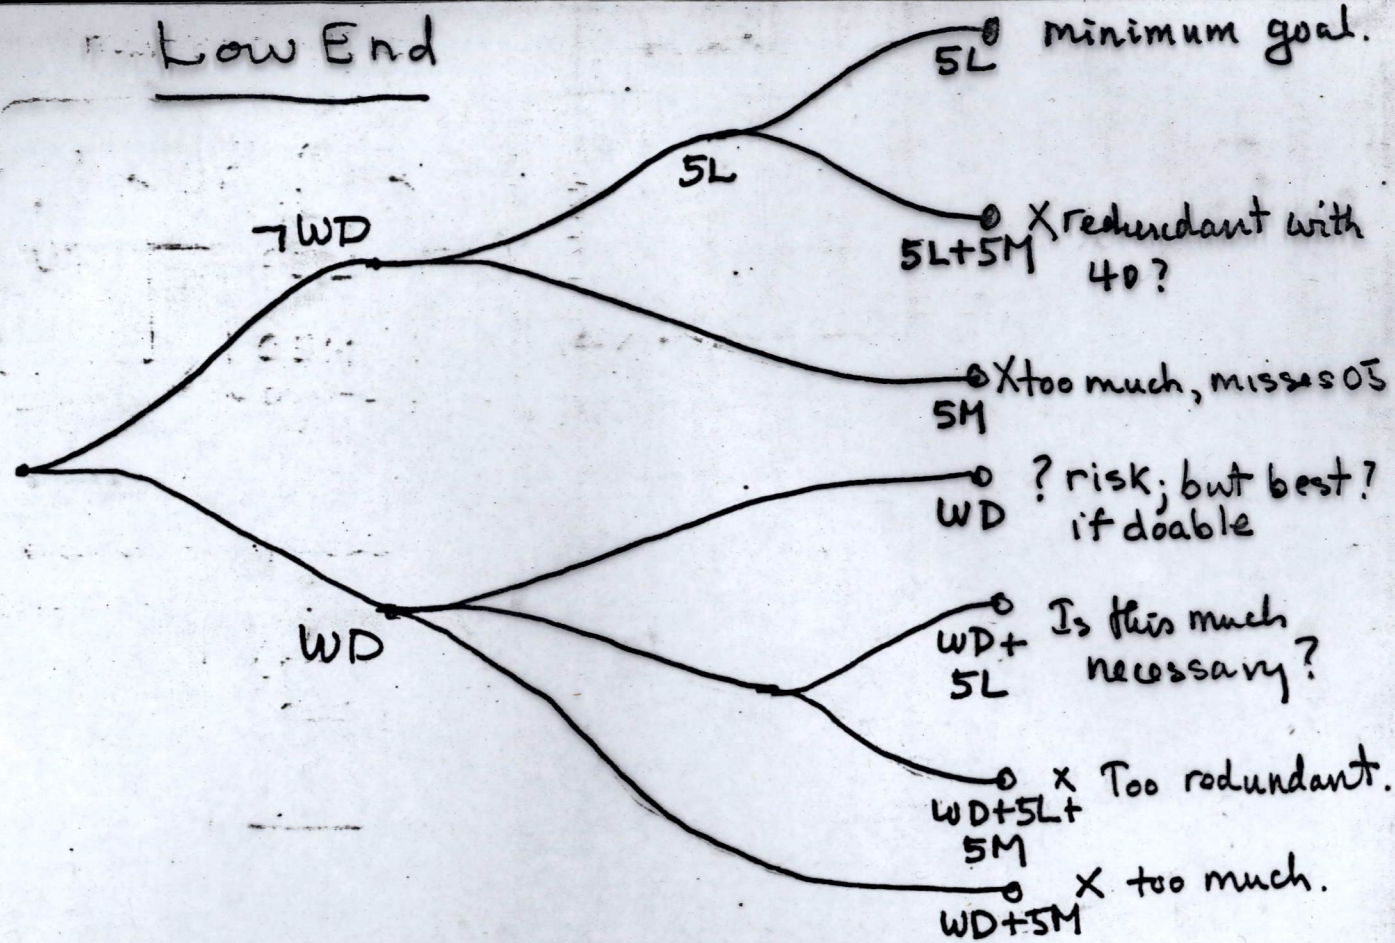 Low End
5L
minimum goal.
5L
¬WD
5L+5M
X redundant with
40?
5M
X too much, misses 05
WD
? risk; but best?
if doable
WD
WD+
5L
Is this much
necessary?
WD+5L+
5M
x Too redundant.
WD+5M
X too much.